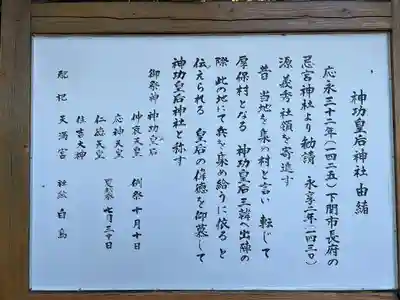 神功皇后神社 由緒
応永三十二年(一四二五)下関市長府の
忌宮神社より勧請 永享二年(一四三〇)
源義秀社領を寄進す
昔 当地を集の村と言い 転じて
厚保村となる 神功皇后三韓へ出陣の
際 此の地にて兵を集め給うに依ると
伝えられる 皇后の偉徳を御慕して
神功皇后神社と称す
御祭神 神功皇后 例祭 十月十日
仲哀天皇
応神天皇 夏越祭 七月三十日
仁徳天皇
住吉大神
配祀 天満宮 社紋 白鳥